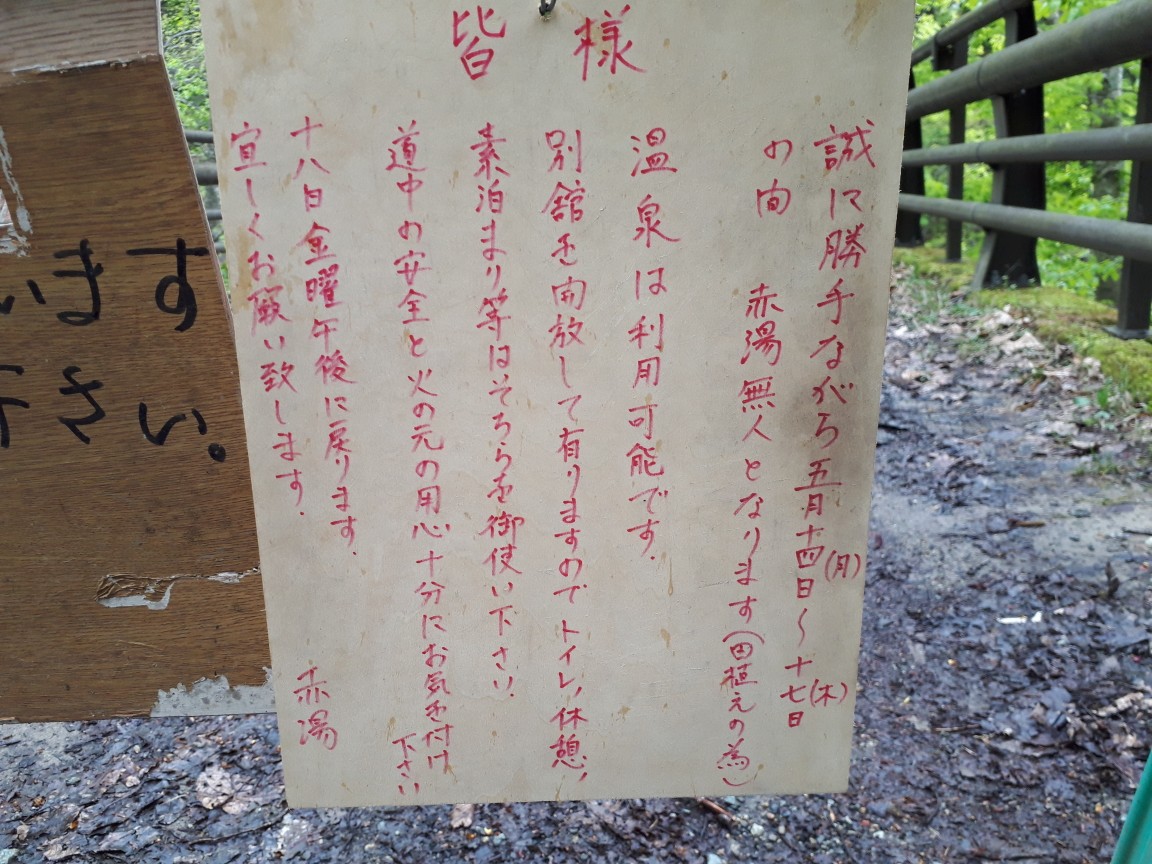 皆様
誠に勝手ながら五月十四日(月)〜十七日(木)
の間 赤湯無人となります(田植えの為)
温泉は利用可能です.
別舘を開放して有りますのでトイレ,休憩,
素泊まり等はそちらを御使い下さい.
道中の安全と火の元の用心十分にお気を付け
下さい
十八日金曜午後に戻ります.
宜しくお願い致します.
赤湯
います
下さい.